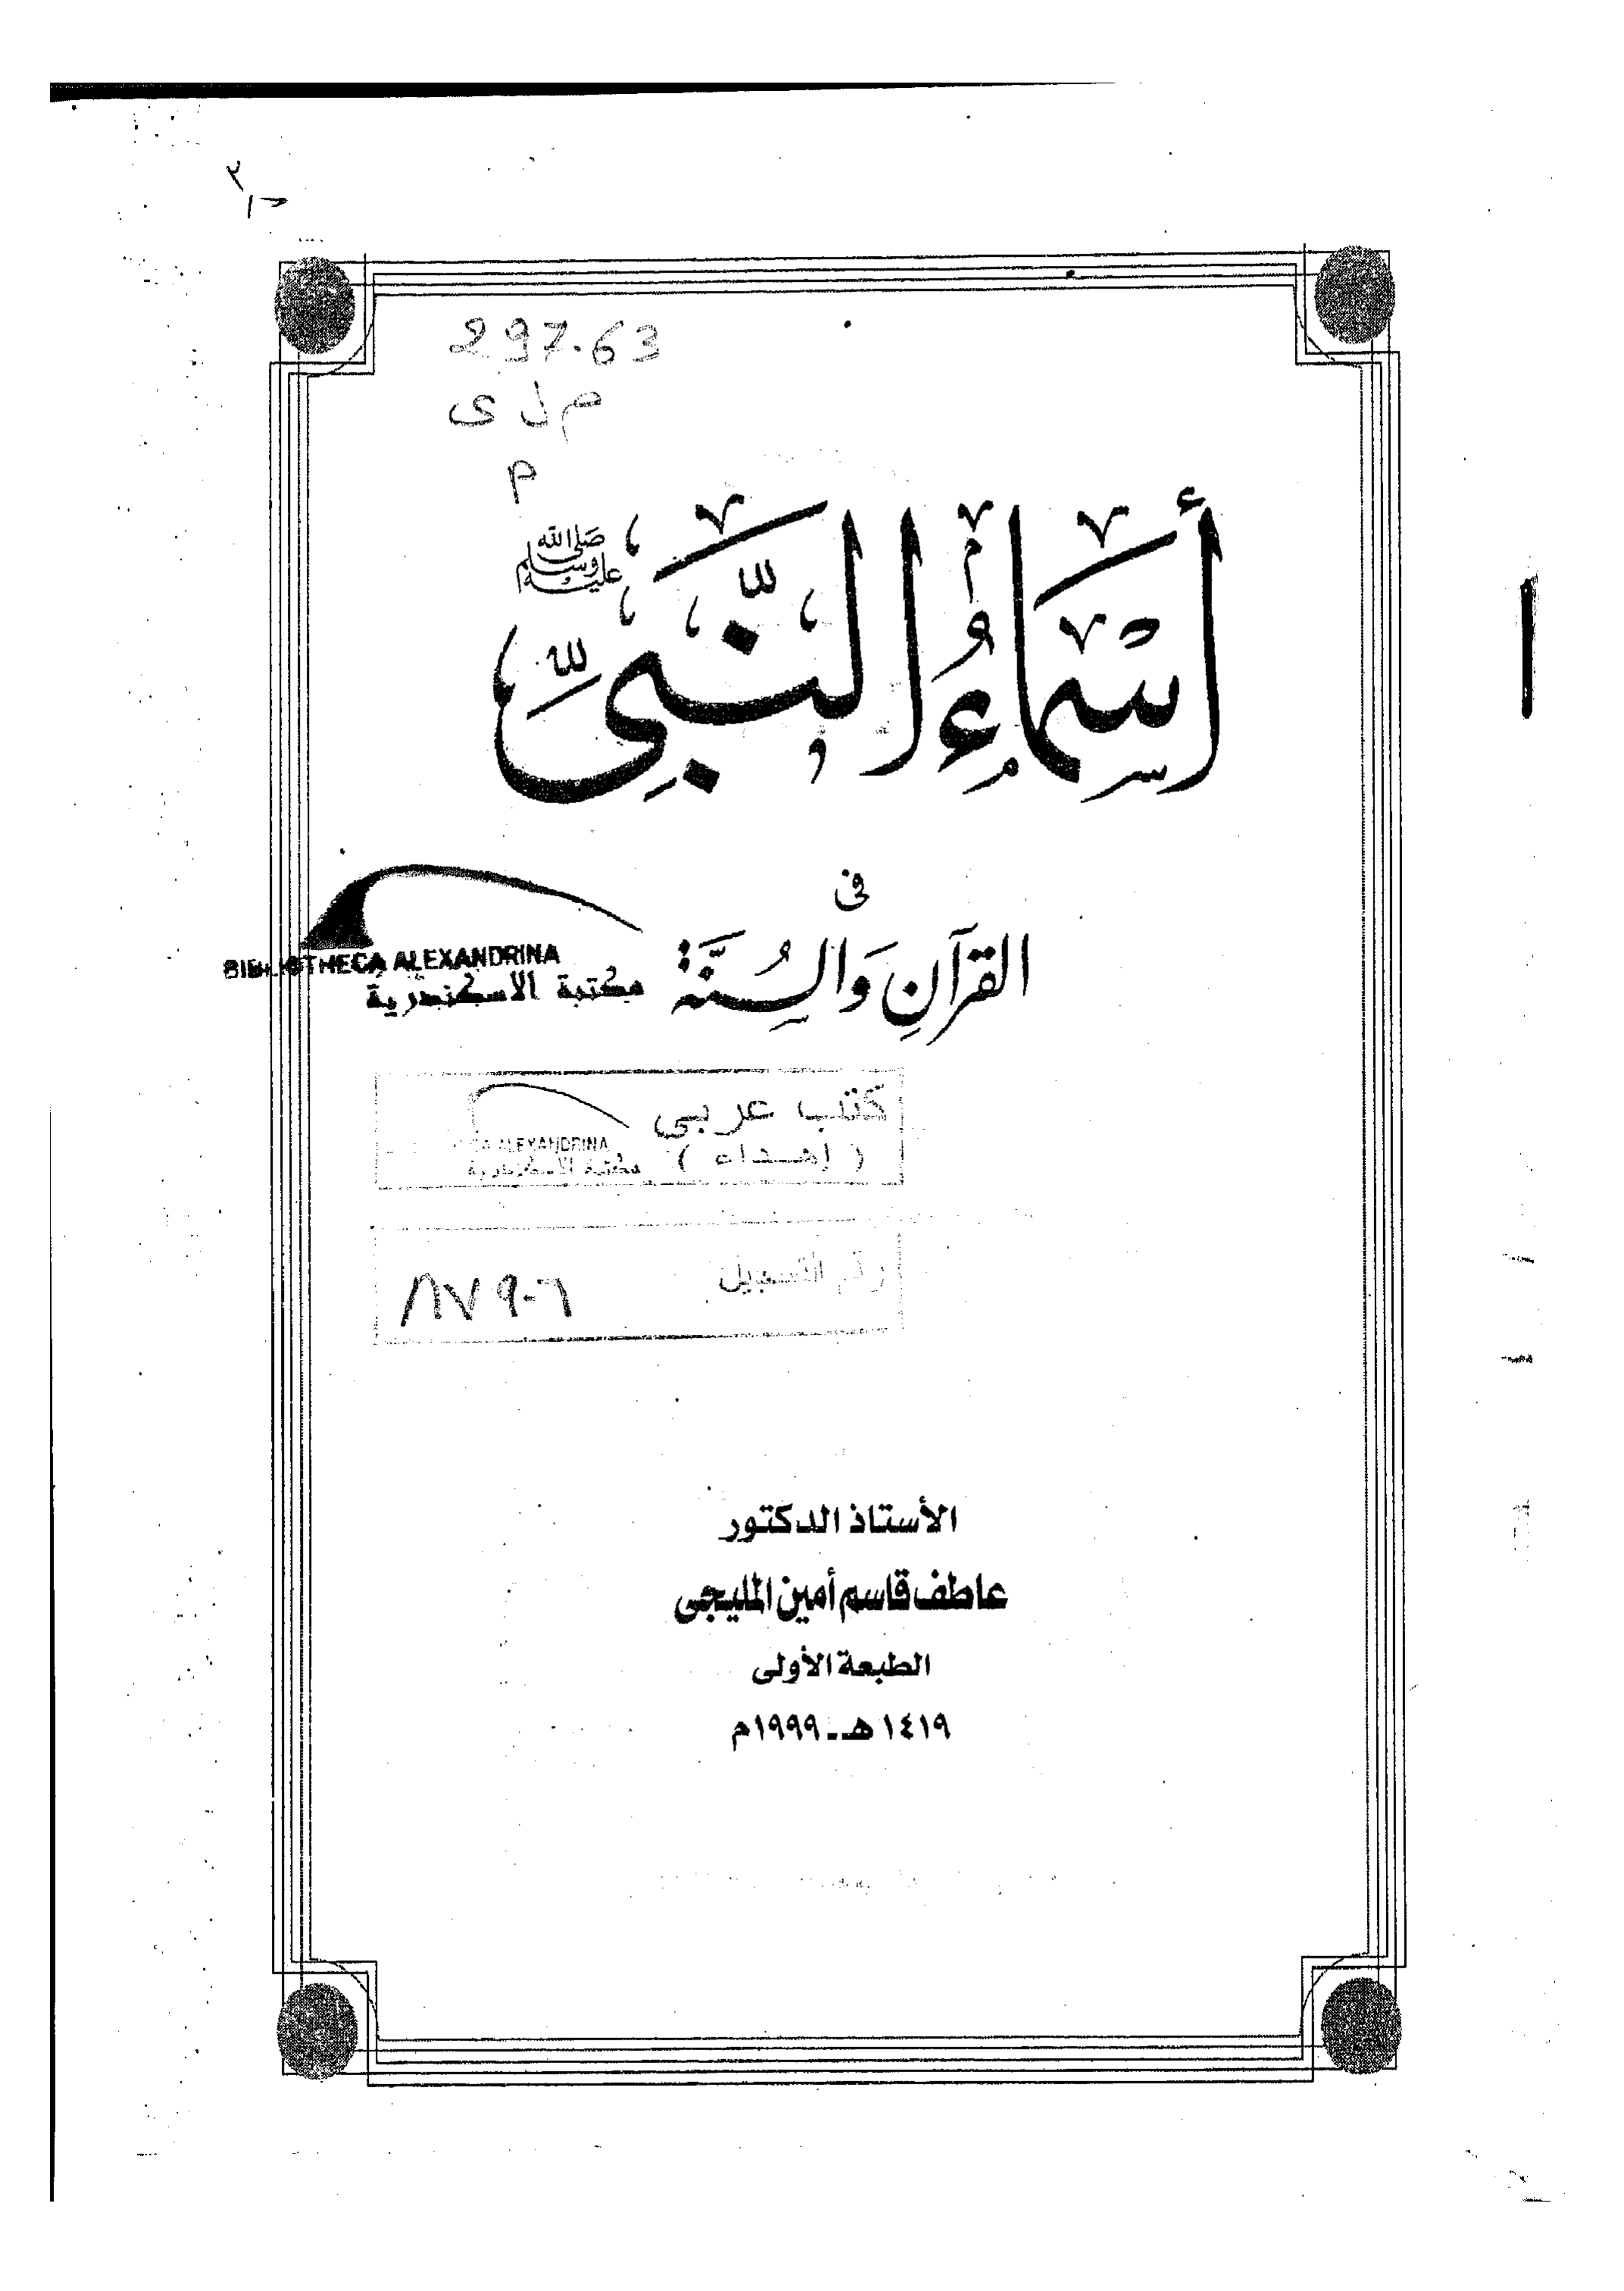 297.63
م ل ى
م
أَسْمَاءُ النَّبِيِّ ﷺ
فى
القرآنِ وَالسُّنَّة
BIBLIOTHECA ALEXANDRINA
مكتبة الاسكندرية
كتب عربي
( إهداء )
ALEXANDRINA
مكتبة الاسكندرية
رقم التسجيل
الأستاذ الدكتور
عاطف قاسم أمين المليجى
الطبعة الأولى
١٤١٩ هـ - ١٩٩٩م